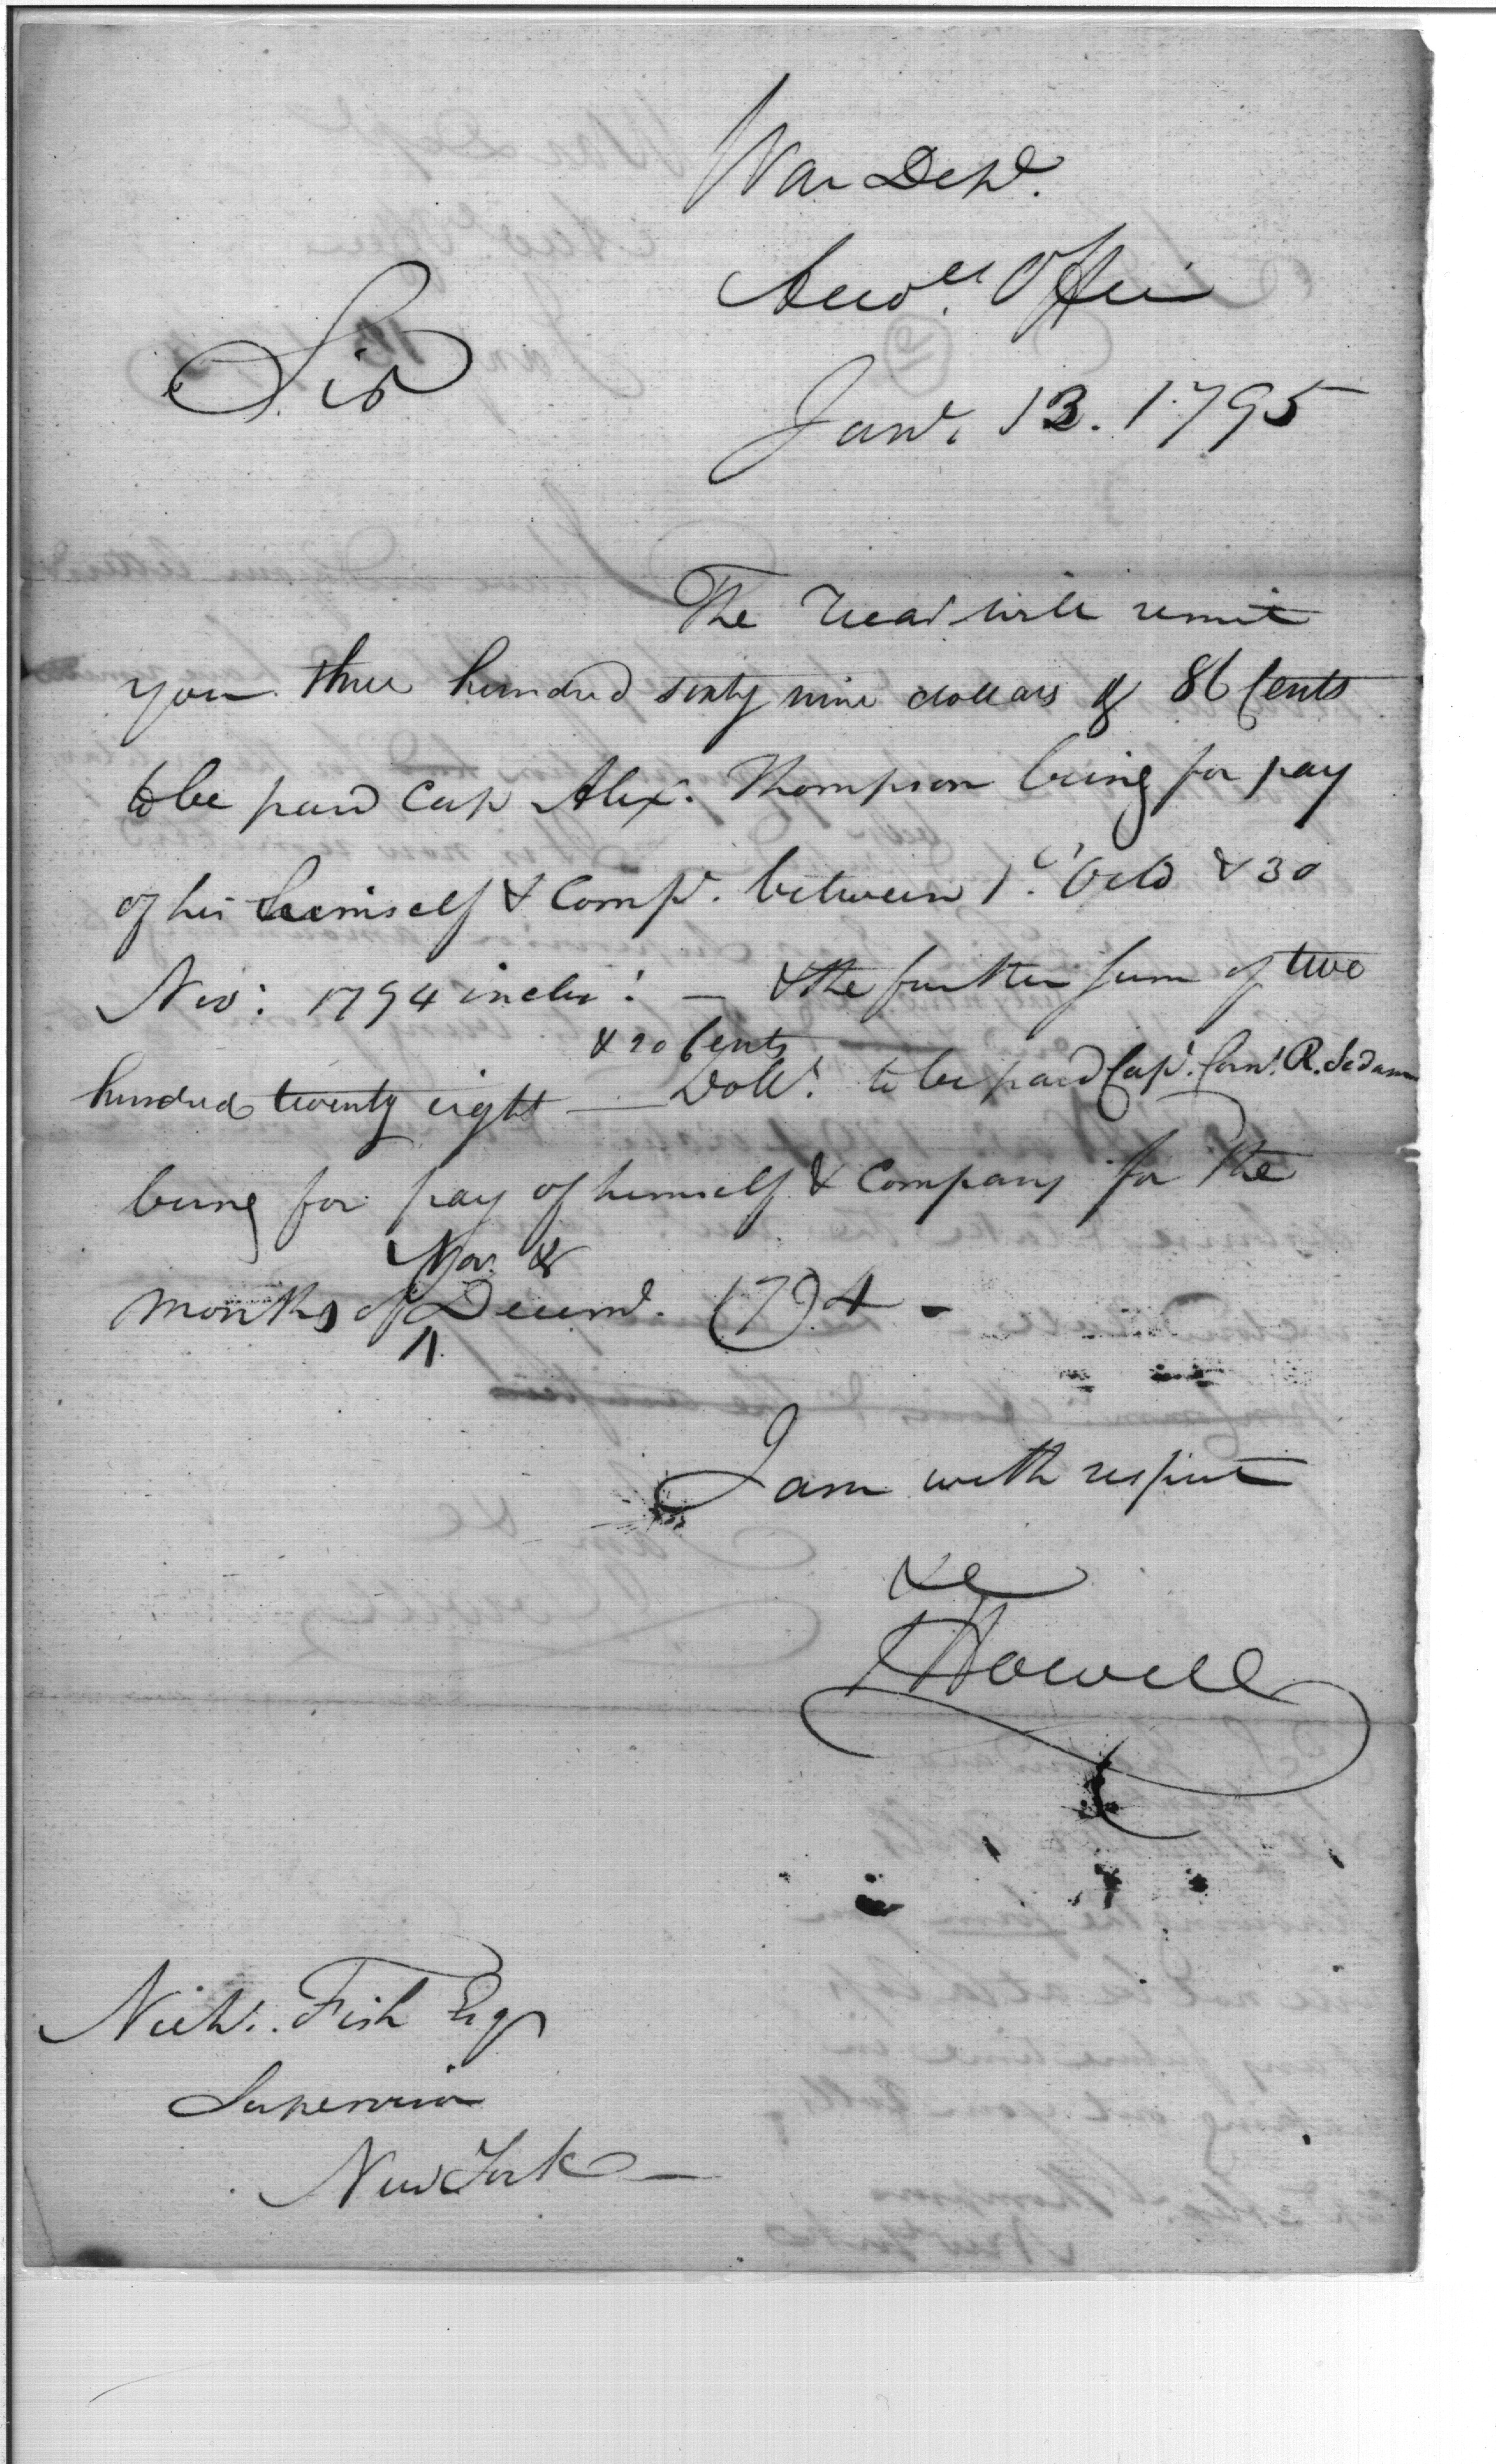 War Dept.
Accots. Office
Sir
Jany. 13. 1795
The Treasr will remit
you three hundred sixty nine dollars & 86 Cents
to be paid Cap Alexr. Thompson being for pay
of his himself & Compy. between 1st. Octo & 30
Nov: 1794 inclus: — & the further sum of two
& 20 Cents
hundred twenty eight — Dolls. to be paid Capt. Corns. R. Sedam
being for pay of himself & Company for the
Nov. &
months of Decemr. 1794 -
I am with respect
&c
J Howell
Nichs. Fish Esqr
Supervisor
New York —